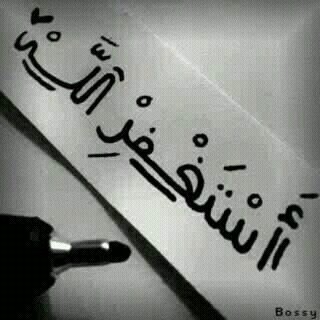 أَسْتَغْفِرُ اللَّهَ
Bossy